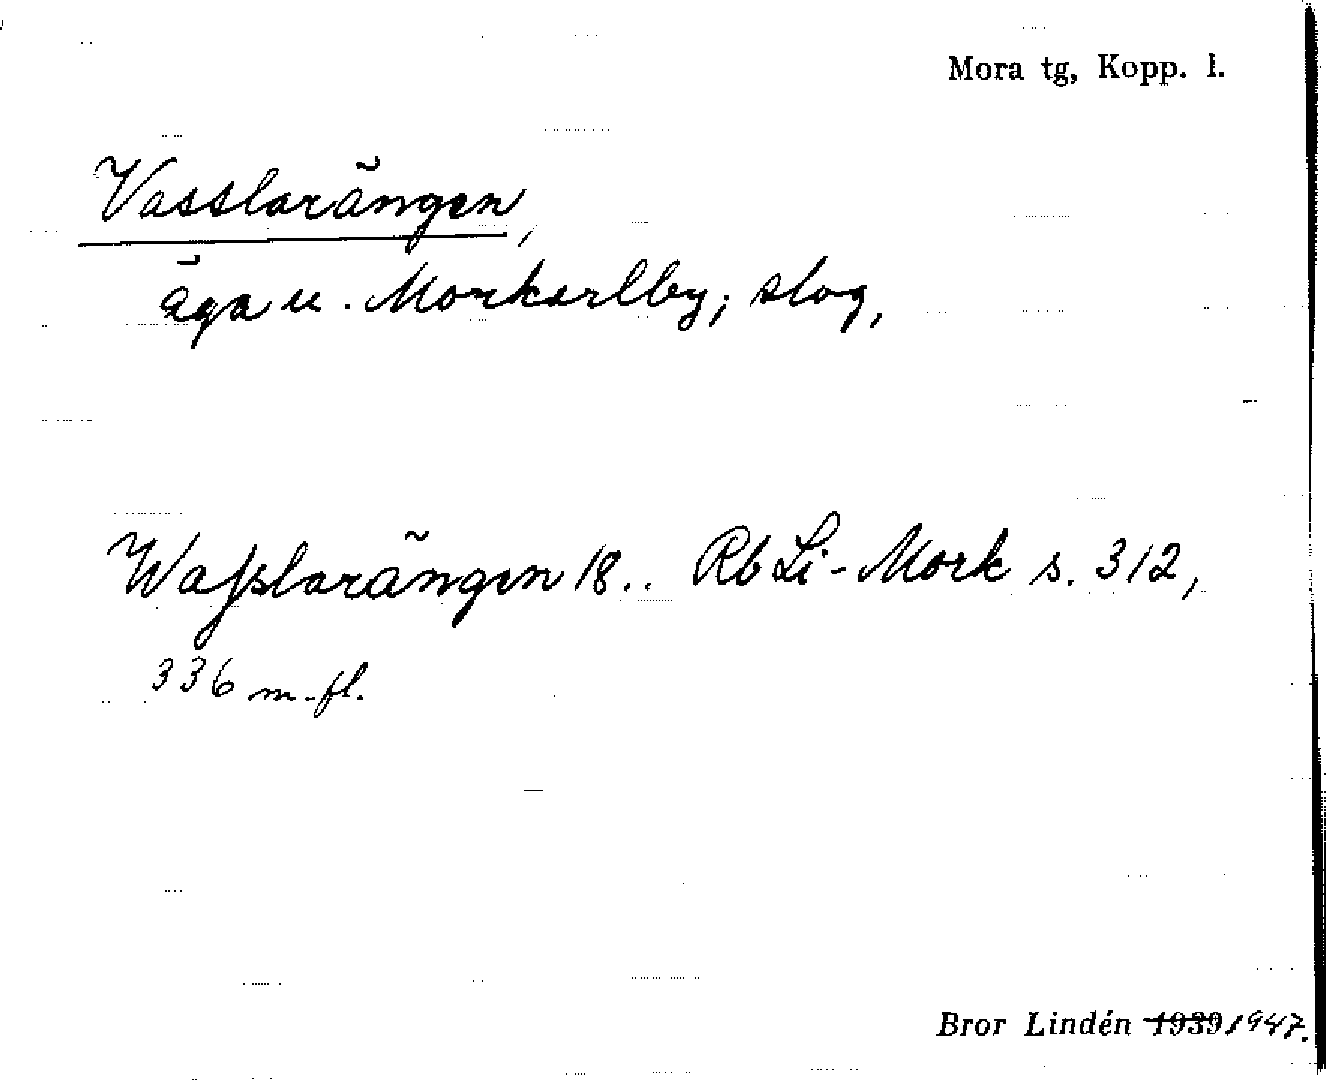 Mora tg, Kopp. l.
Vasslarängen,
äga u. Morkarlby; slog,
Waſslarängen 18.. Rb Li-Mork s. 312,
336 m.fl.
Bror Lindén 1939 1947.